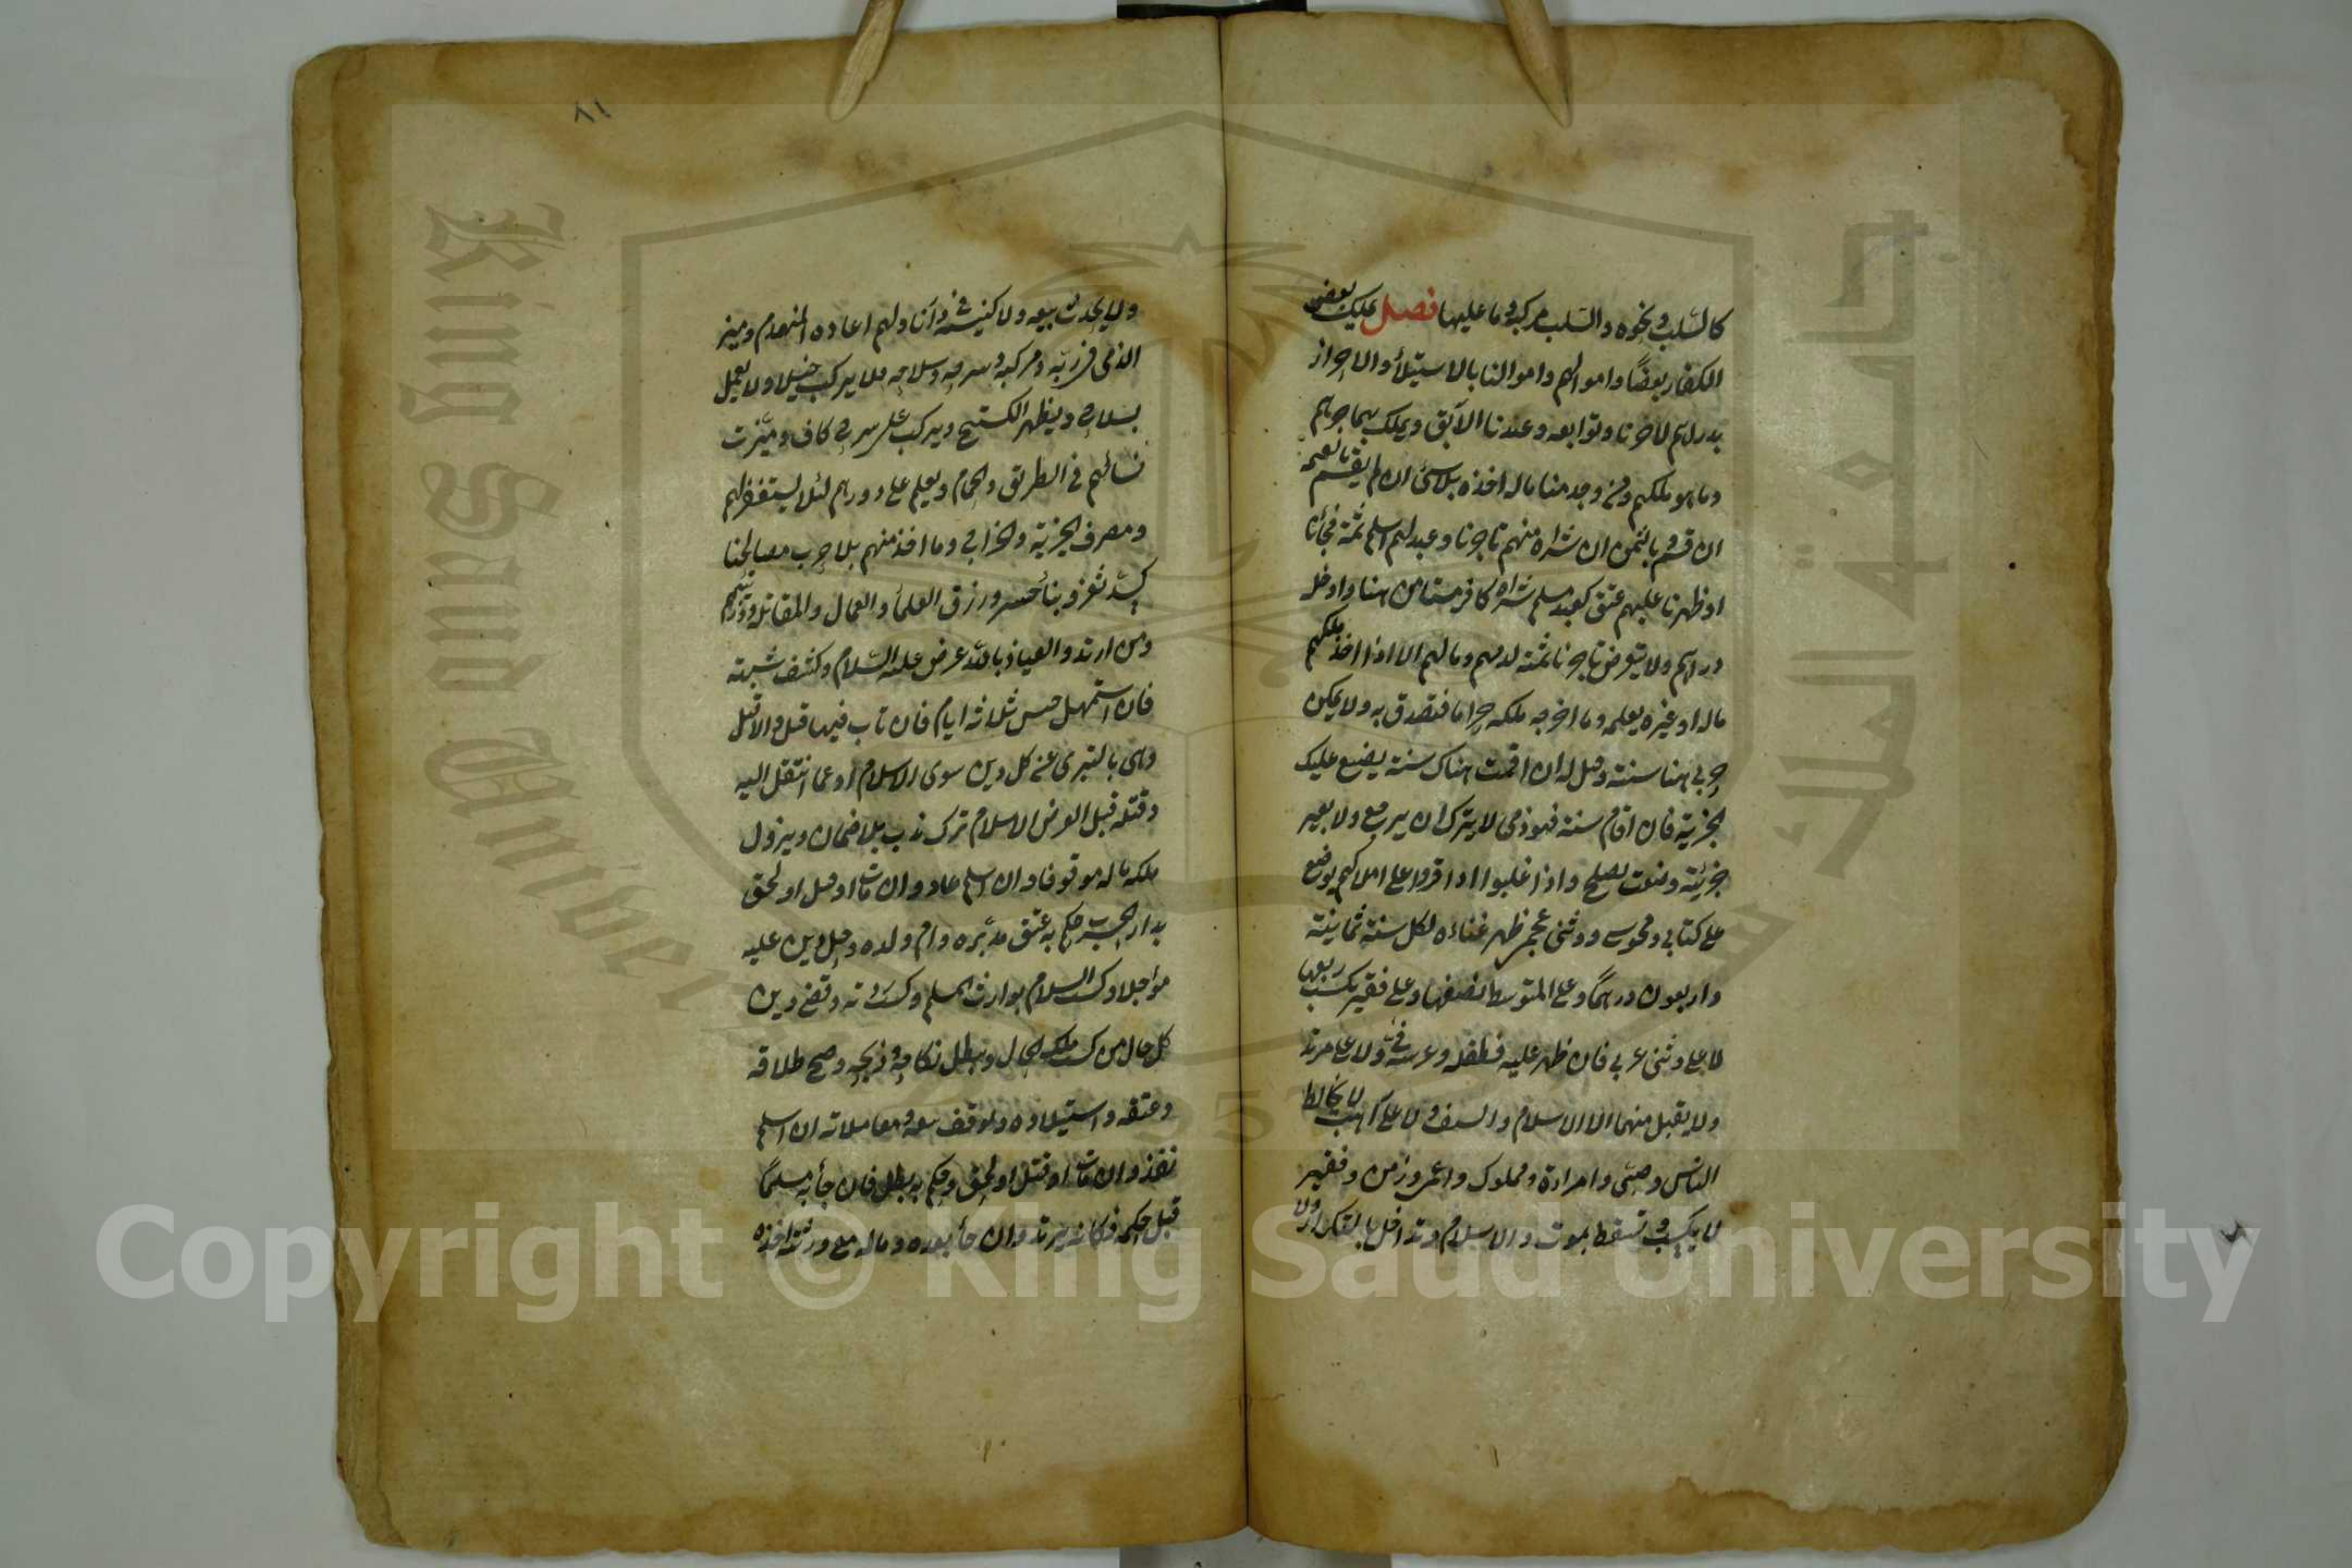 كالسلب ونحوه والسلب مركبه وما عليها فصل يملك بعض
الكفار بعضا واموالهم واموالنا بالاستيلاء والاحراز
بدارهم لا حرنا وتوابعه وعبدنا الآبق ويملك بهما حرهم
وما هو ملكهم ومن وجد منا ماله اخذه بلا شئ ان لم يقسم وبالقيمة
ان قسم وبالثمن ان شراه منهم تاجرنا وعبد لهم اسلم ثمة فجأنا
او ظهرنا عليهم عتق كعبد مسلم شراه كافر مستأمن هنا وادخله
دارهم ولا يتعرض تاجرنا ثمة لدمهم ومالهم الا اذا اخذ ملكهم
ماله او غيره بعلمه وما اخرجه ملكه حراما فتصدق به ولا يمكن
حربي هنا سنة وقيل له ان اقمت هناك سنة يضع عليك
الجزية فان اقام سنة فهو ذمي لا يترك ان يرجع ولا يغير
جزية وضعت بصلح واذا غلبوا اذا اقروا على املاكهم يوضع
على كتابي ومجوسي ووثني عجمي ظهر غناؤه لكل سنة ثمانية
واربعون درهما وعلى المتوسط نصفها وعلى فقير يكسب ربعها
لا على وثني عربي فان ظهر عليه فطفله وعرسه فئ ولا على مرتد
ولا يقبل منهما الا الاسلام والسيف ولا على راهب لا يخالط
الناس وصبي وامرأة ومملوك واعمى وزمن وفقير
لا يكسب وتسقط بموت والاسلام وتداخل بالتكرار ولا
٨١
ولا يحدث بيعة ولا كنيسة في دارنا ولهم اعادة المنهدم وميز
الذمي في زيه ومركبه وسرجه وسلاحه فلا يركب خيلا ولا يعمل
بسلاح ويظهر الكستيج ويركب على سرج كاف وميزت
نسائهم في الطريق والحمام ويعلم على دورهم لئلا يستغفر لهم
ومصرف الجزية والخراج وما اخذ منهم بلا حرب مصالحنا
كسد ثغر وبناء جسر ورزق العلماء والعمال والمقاتلة وذريتهم
ومن ارتد والعياذ بالله عرض عليه الاسلام وكشف شبهته
فان استمهل حبس ثلاثة ايام فان تاب فيها قبل والا قتل
وهي بالتبرى عن كل دين سوى الاسلام او عما انتقل اليه
وقتله قبل العرض الاسلام ترك ندب بلا ضمان ويزول
ملكه ماله موقوفا وان اسلم عاد وان مات او قتل او لحق
بدار الحرب وحكم به عتق مدبره وام ولده وحل دين عليه
مؤاجلا وكسب اسلامه لوارثه المسلم وكسب ردته وقضى دين
كل حال من كسب تلك الحال وبطل نكاحه وذبحه وصح طلاقه
وعتقه واستيلاده وتوقف بيعه ومعاملاته ان اسلم
نفذ وان مات او قتل او لحق وحكم به بطل فان جأ به مسلما
قبل حكمه فكانه لم يرتد وان جأ بعده وماله مع ورثته اخذه
Copyright © King Saud University
King Saud University